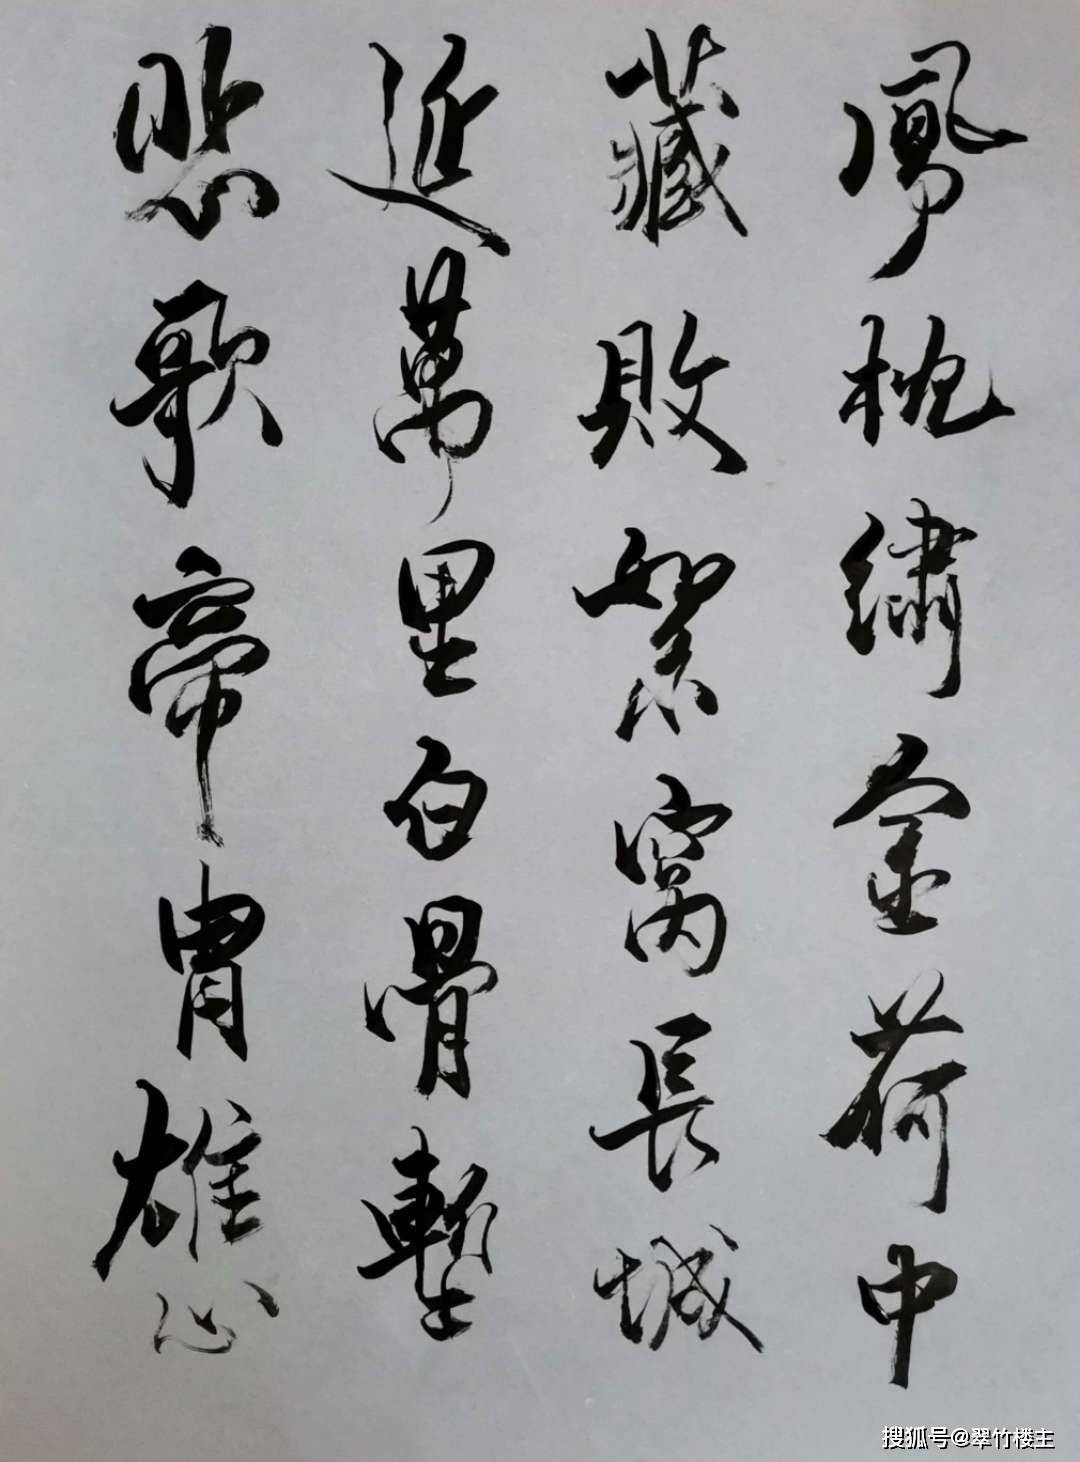 鳳枕繡金荷中
藏敗絮窩長城
逛萬里白骨塹
悲歌帝冑雄心
搜狐号@翠竹楼主